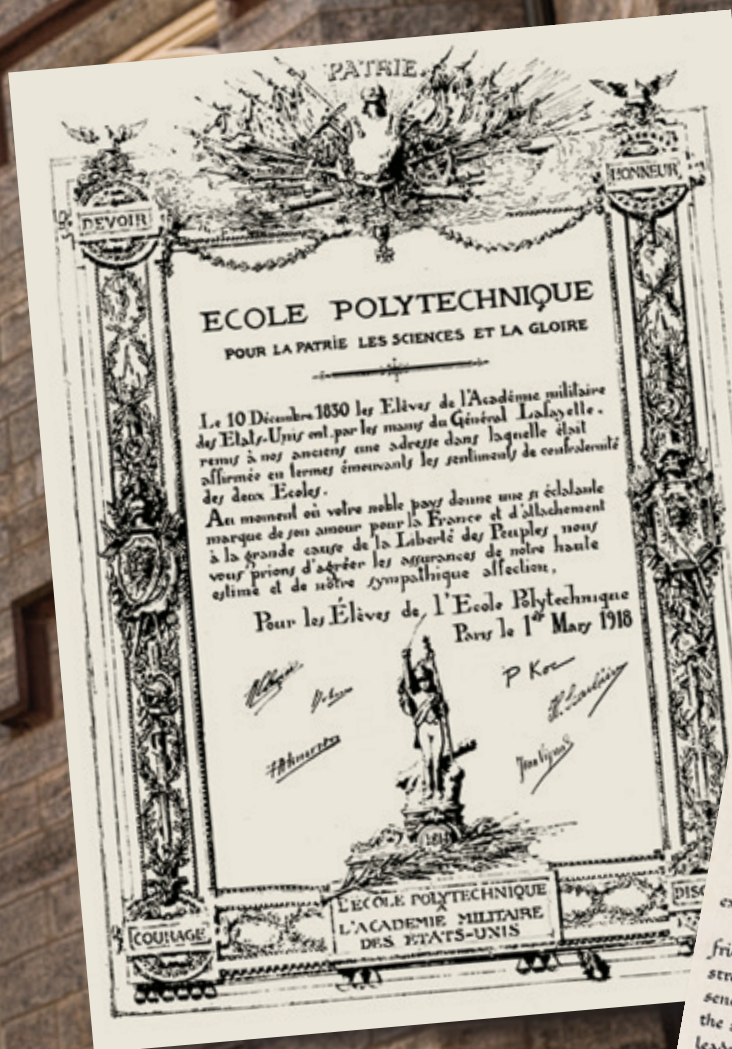 PATRIE
DEVOIR
HONNEUR
ECOLE POLYTECHNIQUE
POUR LA PATRIE LES SCIENCES ET LA GLOIRE
Le 10 Décembre 1830 les Elèves de l'Académie militaire
des Etats-Unis ont par les mains du Général Lafayelle.
remis à nos anciens une adresse dans laquelle était
affirmée en termes émouvants les sentiments de confraternité
des deux Ecoles.
Au moment où votre noble pays donne une si éclatante
marque de son amour pour la France et d'attachement
à la grande cause de la Liberté des Peuples nous
vous prions d'agréer les assurances de notre haute
estime et de nôtre sympathique affection.
Pour les Élèves de l'Ecole Polytechnique
Paris le 1er Mars 1918
P Koc
1814
COURAGE
L'ÉCOLE POLYTECHNIQUE
A
L'ACADEMIE MILITAIRE
DES ETATS-UNIS
DISC
the